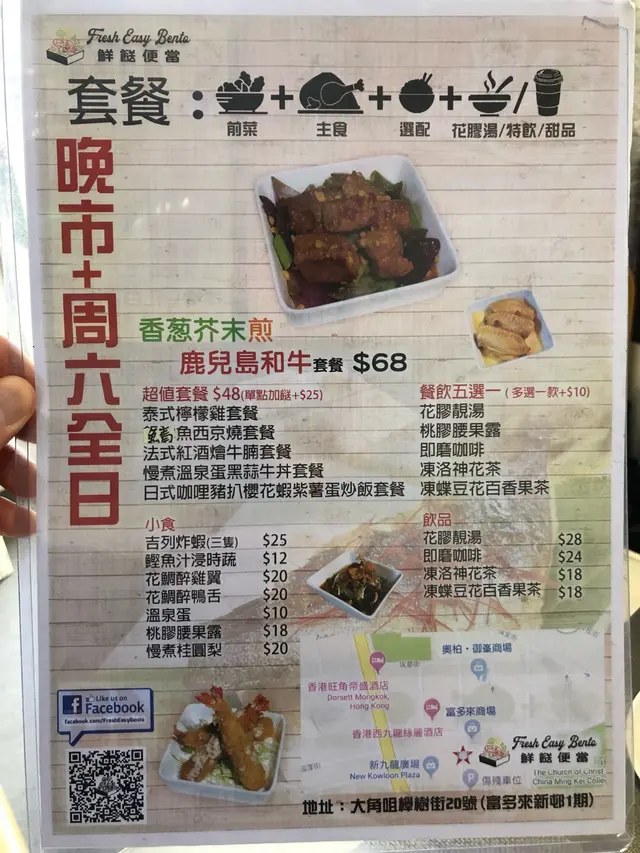 Fresh Easy Bento
鮮餸便當
套餐：
前菜 + 主食 + 選配 + 花膠湯/特飲/甜品
晚市+周六全日
香葱芥末煎
鹿兒島和牛套餐 $68
超值套餐 $48(單點加餸+$25)
泰式檸檬雞套餐
魚西京燒套餐
法式紅酒燴牛腩套餐
慢煮溫泉蛋黑蒜牛丼套餐
日式咖哩豬扒櫻花蝦紫薯蛋炒飯套餐
餐飲五選一 (多選一款+$10)
花膠靚湯
桃膠腰果露
即磨咖啡
凍洛神花茶
凍蝶豆花百香果茶
小食
吉列炸蝦(三隻) $25
鰹魚汁浸時蔬 $12
花鯛醉雞翼 $20
花鯛醉鴨舌 $20
溫泉蛋 $10
桃膠腰果露 $18
慢煮桂圓梨 $20
飲品
花膠靚湯 $28
即磨咖啡 $24
凍洛神花茶 $18
凍蝶豆花百香果茶 $18
Like us on
Facebook
facebook.com/FreshEasyBento
奧柏·御峯商場
埃華街
香港旺角帝盛酒店
Dorsett Mongkok,
Hong Kong
富多來商場
香港西九龍絲麗酒店
新九龍廣場
New Kowloon Plaza
Fresh Easy Bento
鮮餸便當
傷殘車位
The Church of Christ
China Ming Kei Colle
地址：大角咀櫸樹街20號(富多來新邨1期)